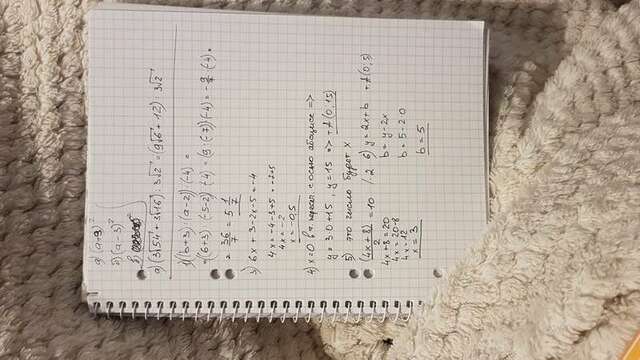 а) (a+9)²
б) (a-3)²
в)
а) (3√54 + 3√16) : 3√2 = (9√6 + 12) : 3√2
1) (b+3) : (a-2) · (-4) =
= (6+3) : (-5-2) · -4 = (9 : (-7)) · (-4) = -9/7 · (-4) =
= 36/7 = 5 1/7
3) 6x + 3-2x-5=-4
4x = -4-3+5 = -2+5
4x = -2
x = -0,5
4) x=0 в т. перес. с осью абсцисс =>
y = 3·0+15, y = 15 => т A (0, 15)
5) это число будет x
(4x + 8)/2 = 10 | · 2
4x+8 = 20
4x = 20-8
4x = 12
x = 3
6) y = 2x+b т A(0, 5)
b = y - 2x
b = 5 - 2·0
b = 5